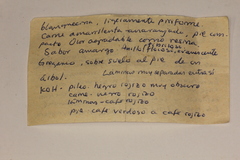 blanquecina, ligeramente piriforme.
Carne amarillenta anaranjada, pie com-
pacto Olor agradable como resina.
Sabor amargo
Gregario, sobre suelo al pie de un
árbol. Láminas muy separadas entre sí
KOH - pileo negro rojizo muy obscuro
carne - negro rojizo
láminas - café rojizo
pie café verdoso a café rojizo